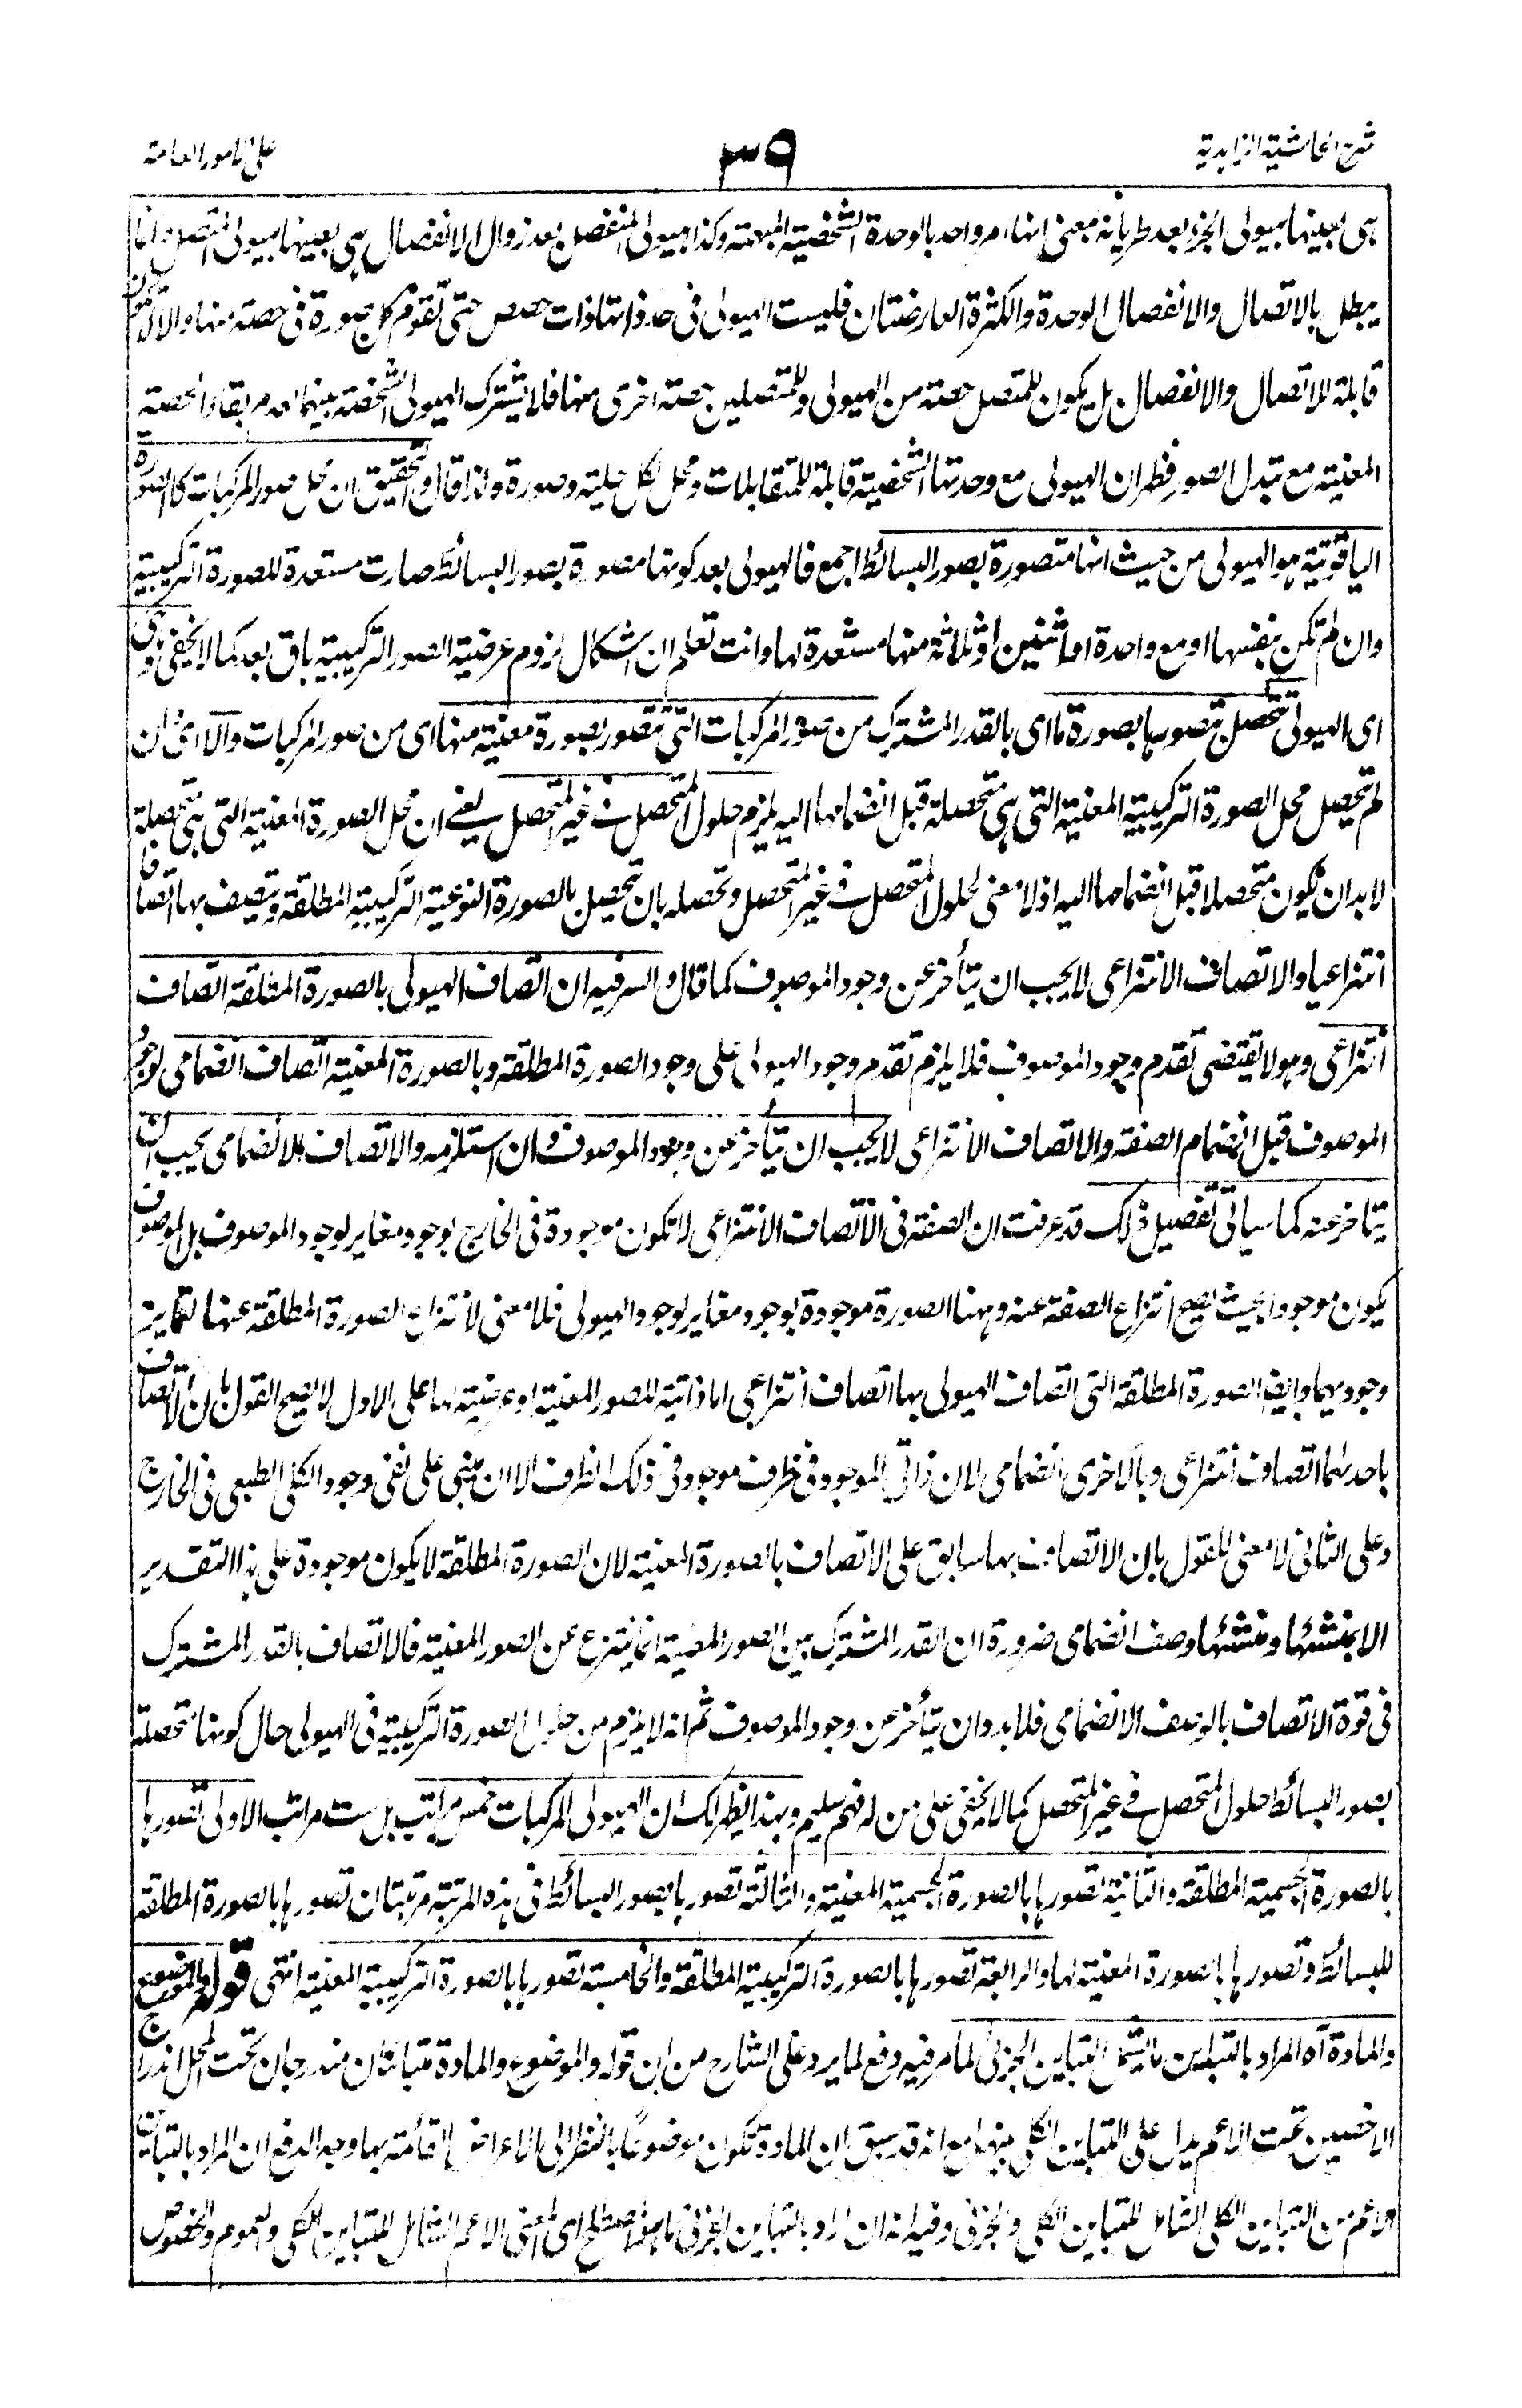 شرح الحاشية الزاهدية
٣٩
على الامور العامة
هى بعينها هيولى الجزء بعد طريانه بمعنى انها امر واحد بالوحدة الشخصية المبهمة وكذا هيولى المنفصل بعد زوال الانفصال هى بعينها هيولى المتصل وانما
يبطل بالاتصال والانفصال الوحدة والكثرة العارضتان فليست الهيولى فى حد ذاتها ذات حصص حتى تقوم كل صورة فى حصة منها والا لم تكن
قابلة للاتصال والانفصال بل يكون للمتصل حصة من الهيولى وللمتصلين حصة اخرى منها فلا يشترك الهيولى الشخصية بينهما لعدم بقاء الحصة
المعنية مع تبدل الصور فظهر ان الهيولى مع وحدتها الشخصية قابلة للمتقابلات ومحل لكل حلية وصورة ولذا قال والتحقيق ان محل صور المركبات كالصورة
الياقوتية هو الهيولى من حيث انها متصورة بصور البسائط اجمع فالهيولى بعد كونها متصورة بصور البسائط صارت مستعدة للصورة التركيبية
وان لم تكن بنفسها او مع واحدة او اثنين او ثلاثة منها مستعدة لها وانت تعلم ان اشكال لزوم عرضية الصور التركيبية باق بعد كما لا يخفى وهى
اى الهيولى تتحصل بتصورها بصورة ما اى بالقدر المشترك من صور المركبات التى تتصور بصورة معنية منها اى من صور المركبات والا اى ان
لم تحصل محل الصورة التركيبية المعنية التى هى متحصلة قبل انضمامها اليه يلزم حلول المتحصل فى غير المتحصل يعنى ان محل الصورة المعنية التى هى متحصلة
لا بد ان يكون متحصلا قبل انضمامها اليه اذ لا معنى لحلول المتحصل فى غير المتحصل وتحصله بان تحصل بالصورة النوعية التركيبية المطلقة ويتصف بها اتصافا
انتزاعيا والاتصاف الانتزاعى لا يجب ان يتأخر عن وجود الموصوف كما قال والسر فيه ان اتصاف الهيولى بالصورة المطلقة اتصاف
انتزاعى وهو لا يقتضى تقدم وجود الموصوف فلا يلزم تقدم وجود الهيولى على وجود الصورة المطلقة وبالصورة المعنية اتصاف انضمامى لوجود
الموصوف قبل انضمام الصفة والاتصاف الانتزاعى لا يجب ان يتأخر عن وجود الموصوف وان استلزمه والاتصاف الانضمامى يجب ان
يتأخر عنه كما سيأتى تفصيل ذلك قد عرفت ان الصفة فى الاتصاف الانتزاعى لا تكون موجودة فى الخارج بوجود مغاير لوجود الموصوف بل الموصوف
يكون موجودا بحيث يصح انتزاع الصفة عنه وههنا الصورة موجودة بوجود مغاير لوجود الهيولى فلا معنى لانتزاع الصورة المطلقة عنها لتمايز
وجوديهما وايضا الصورة المطلقة التى اتصاف الهيولى بها اتصاف انتزاعى اما ذاتية للصور المعنية او عرضية لها على الاول لا يصح القول بان الاتصاف
باحدهما اتصاف انتزاعى وبالاخرى انضمامى لان ذاتى الموجود فى ظرف موجود فى ذلك الظرف الا ان يبنى على نفى وجود الكلى الطبعى فى الخارج
وعلى الثانى لا معنى للقول بان الاتصاف بها سابق على الاتصاف بالصورة المعنية لان الصورة المطلقة لا يكون موجودة على هذا التقدير
الا بمنشئها ومنشئها وصف انضمامى ضرورة ان القدر المشترك بين الصور المعنية انما ينتزع عن الصور المعنية فالاتصاف بالقدر المشترك
فى قوة الاتصاف بالوصف الانضمامى فلا بد وان يتأخر عن وجود الموصوف ثم انه لا يلزم من حلول الصورة التركيبية فى الهيولى حال كونها متحصلة
بصور البسائط حلول المتحصل فى غير المتحصل كما لا يخفى على من له فهم سليم وبهذا يظهر لك ان الهيولى المركبات خمس مراتب بل ست مراتب الاولى تصورها
بالصورة الجسمية المطلقة والثانية تصورها بالصورة الجسمية المعنية والثالثة تصورها بصور البسائط فى هذه المرتبة مرتبتان تصورها بالصورة المطلقة
للبسائط وتصورها بالصورة المعنية لها والرابعة تصورها بالصورة التركيبية المطلقة والخامسة تصورها بالصورة التركيبية المعنية انتهى قوله والموضوع
والمادة آه المراد بالتباين ما يشمل التباين الجزئى لما مر فيه دفع لما يرد على الشارح من ان قوله والموضوع والمادة متباينان مندرجان تحت المحل اندراج
الاخصين تحت الاعم يدل على التباين الكلى بينهما مع انه قد سبق ان المادة تكون موضوعا بالنظر الى الاعراض القائمة بها وجه الدفع ان المراد بالتباين
الاعم من التباين الكلى الشامل للتباين الكلى والجزئى وفيه انه ان اراد بالتباين الجزئى ما هو المصطلح اى المعنى الاعم الشامل للتباين الكلى والعموم والخصوص